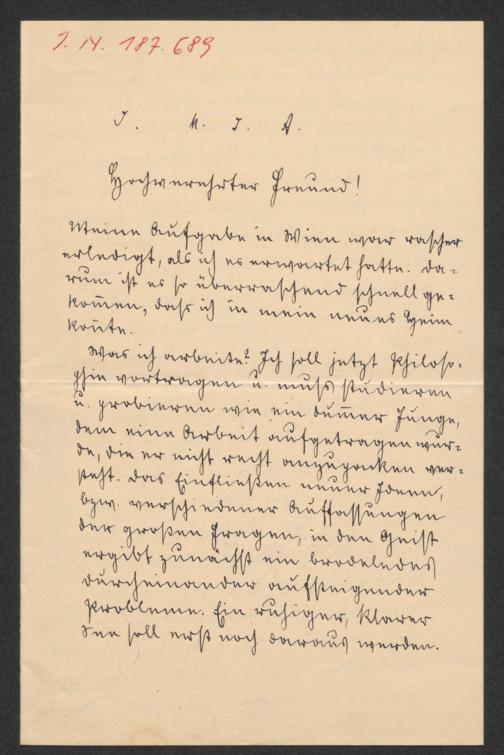 J. N. 187.689
J. M. J. A.
Hochverehrter Freund!
Meine Aufgabe in Wien war rascher
erledigt, als ich es erwartet hatte. Da-
rum ist es so überraschend schnell ge-
kom̄en, dass ich in mein neues Heim
kon̄te.
Was ich arbeite? Ich soll jetzt Philoso-
phie vortragen u. muss studieren
u. probieren wie ein dum̄er Junge,
dem eine Arbeit aufgetragen wur-
de, die er nicht recht anzupacken ver-
steht. Das Einfließen neuer Ideen,
bzw. verschiedener Auffassungen
der großen Fragen, in den Geist
ergibt zunächst ein brodelndes
Durcheinander aufsteigender
Probleme. Ein ruhiger, klarer
See soll erst noch daraus werden.